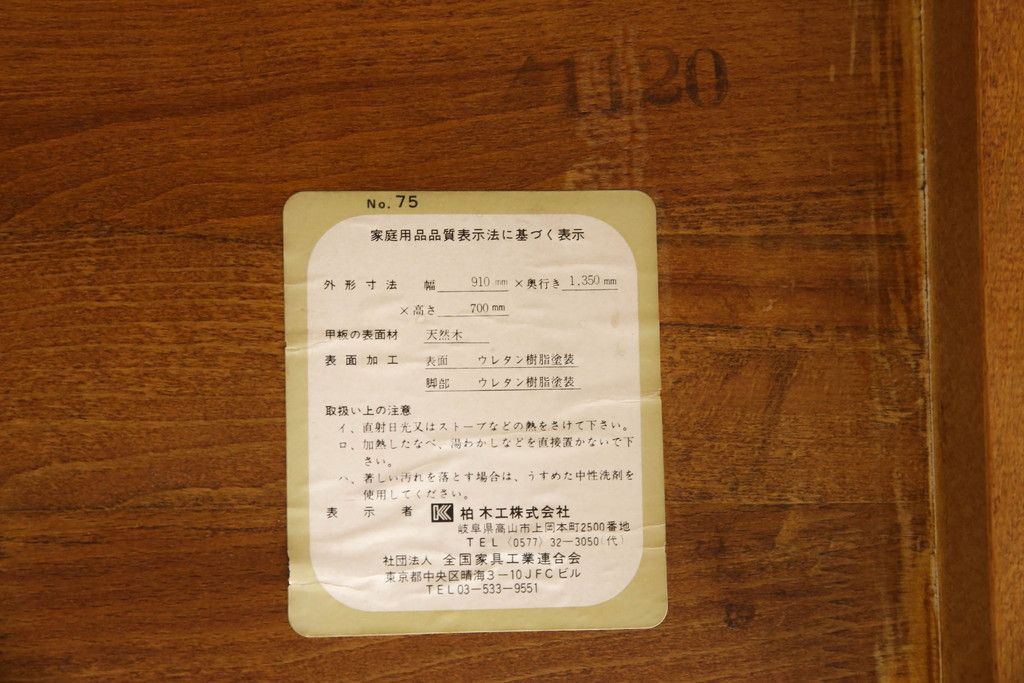 1120
No. 75
家庭用品品質表示法に基づく表示
外形寸法 幅 910 mm ×奥行き 1.350 mm
×高さ 700 mm
甲板の表面材 天然木
表面加工 表面 ウレタン樹脂塗装
脚部 ウレタン樹脂塗装
取扱い上の注意
イ、直射日光又はストーブなどの熱をさけて下さい。
ロ、加熱したなべ、湯わかしなどを直接置かないで下
さい。
ハ、著しい汚れを落とす場合は、うすめた中性洗剤を
使用してください。
表示者 柏木工株式会社
岐阜県高山市上岡本町2500番地
TEL (0577) 32-3050(代)
社団法人 全国家具工業連合会
東京都中央区晴海3-10JFCビル
TEL03-533-9551